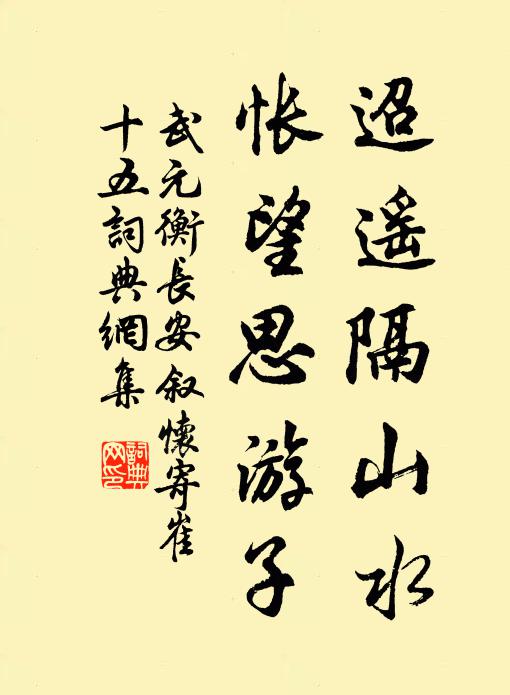 迢遥隔山水
怅望思游子
武元衡长安叙怀寄崔
十五詞典網集
詞典
网印